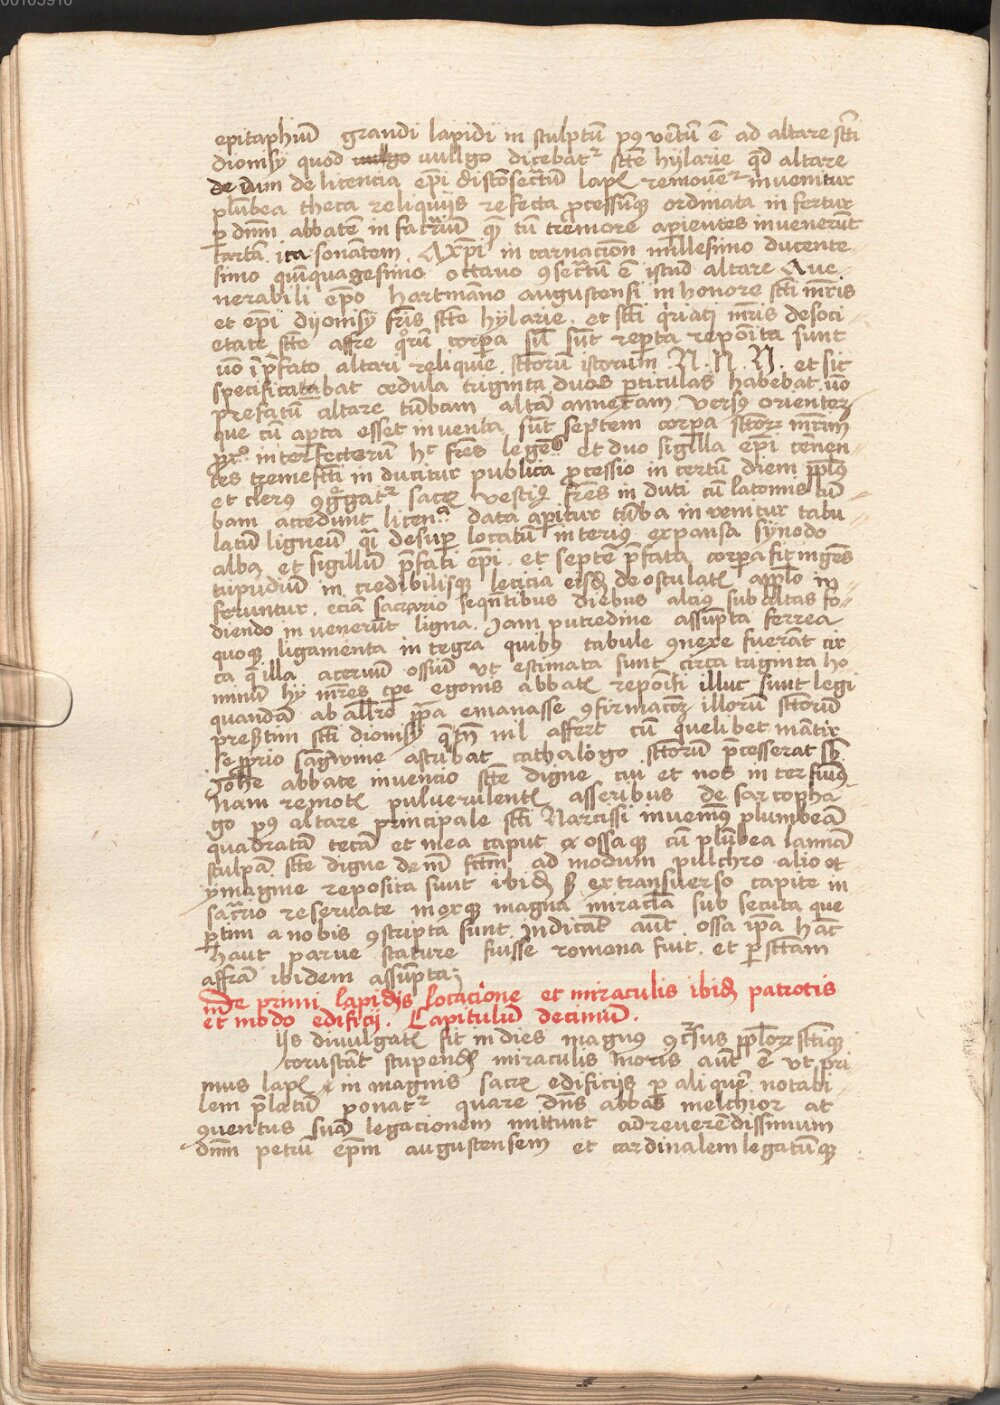 epitaphiū grandi lapidi in sculptū pꝰ ventū ē ad altare scti
dionisy quod vullgo dicebatr scte hylarie qd altare
de dum de licencia epi disconsecratū lapꝭ remouetr inuenitur
plūbea theca reliquijs refecta processiōqꝫ ordinata in fertur
ꝑ dnm abbatē in sacrariū qꝫ cū tremore apientes inuenerūt
cartā ita sonantem. A xpi in carnacion millesimo ducente
simo quīquagesimo octauo ꝯsecratū ē istud altare Aue
nerabili epo hartmāno augustensi in honore scti mris
et epi dyonisy fris scte hylarie. et scti quiraci mris de soci
etate scte affre quorū corpora sil sūt reperta reponita sunt
uō ī pfato altari reliquie sctorū istorum N. N. N. et sic
specificatabat cedula triginta duas ꝑticulas habebat uō
prefatū altare tūbam altā annexam versꝰ orientez
que cū apta esset inuenta sūt septem corpora sctorꝝ mrīm
interfectorū hꝰ fres legeꝰ et duo sigilla epi cōnen
tes tremefcti in ducitur publica processio in certū diem pplꝰ
et clerꝰ ꝯgregatr sacrꝭ vestiꝰ fres in duti cū latomis tū
bam accedunt licenᵃ data aperitur tūba in venitur tabu
latū ligneū qī desuper locatū interiꝰ expansa synodo
alba et sigillū pfati epi. et septē pfata corpora fit ingēs
tripudiū in credibilisqꝫ leticia eisdꝫ deosculatꝭ applo in
feruntur. eciam sacrario sequētibus diebus alciꝰ sub altas fo
diendo in venerūt ligna. Jam putredine assūpta ferrea
quoqꝫ ligamenta in tegra quibꝰ tabule ꝯnexe fuerāt cir
ca q illa aceruū ossiū vt estimata sunt circa triginta ho
minū hy mres tpe egonis abbatꝭ reponiti illuc sunt legi
quandā ab allro ipa emanasse ꝯfirmacōꝫ illorū sctorū
presertim scti dionisy nil affert cū quelibet mātir
se proprio sāgwine astribat cathalogo sctorū pcesserat sb
Johe abbate inuencio scte digne cui et nos in ter fuimꝰ
Nam remotꝭ puluerulentꝭ asseribus de sarcopha
go pꝰ altare principale scti Narcissi inuenimꝰ plumbeā
quadratā tecā et in ea caput & ossaqꝫ cū plūbea lannā
sculpā scte digne de nī fctm ad modum pulchro alio et
ymagine reposita sunt ibidꝫ ß ex transuerso capite in
sacrario reseruate moxqꝫ magna miracla sub secuta que
ꝑtim a nobis ꝯscripta sunt. Indicāt aūt ossa ipa hāc
haut parue stature fuisse romona fuit et ꝑ sctam
affrā ibidem assūpta;
De primi lapidis locacione et miraculis ibidꝫ patrotis
et modo edificij. Capitulū decimū.
IJs diuulgatꝭ fit in dies magnꝰ ꝯcursus pplorꝝ sctiqꝫ
coruscāt stupendꝭ miraculis Moris aūt ē vt pri
mus lapꝭ in magnis sacrꝭ edificijs ꝑ aliquē notabi
lem prelatū ponatr quare dns abbas melchior ac
ꝯuentus suā legacionem mittunt ad reuerēdissimum
dnm petrū epm augustensem et cardinalem legatūqꝫ